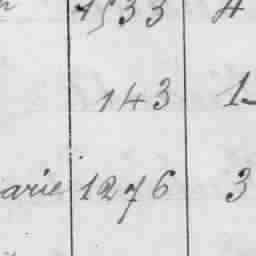 1533 4
143 1
arie 1276 3